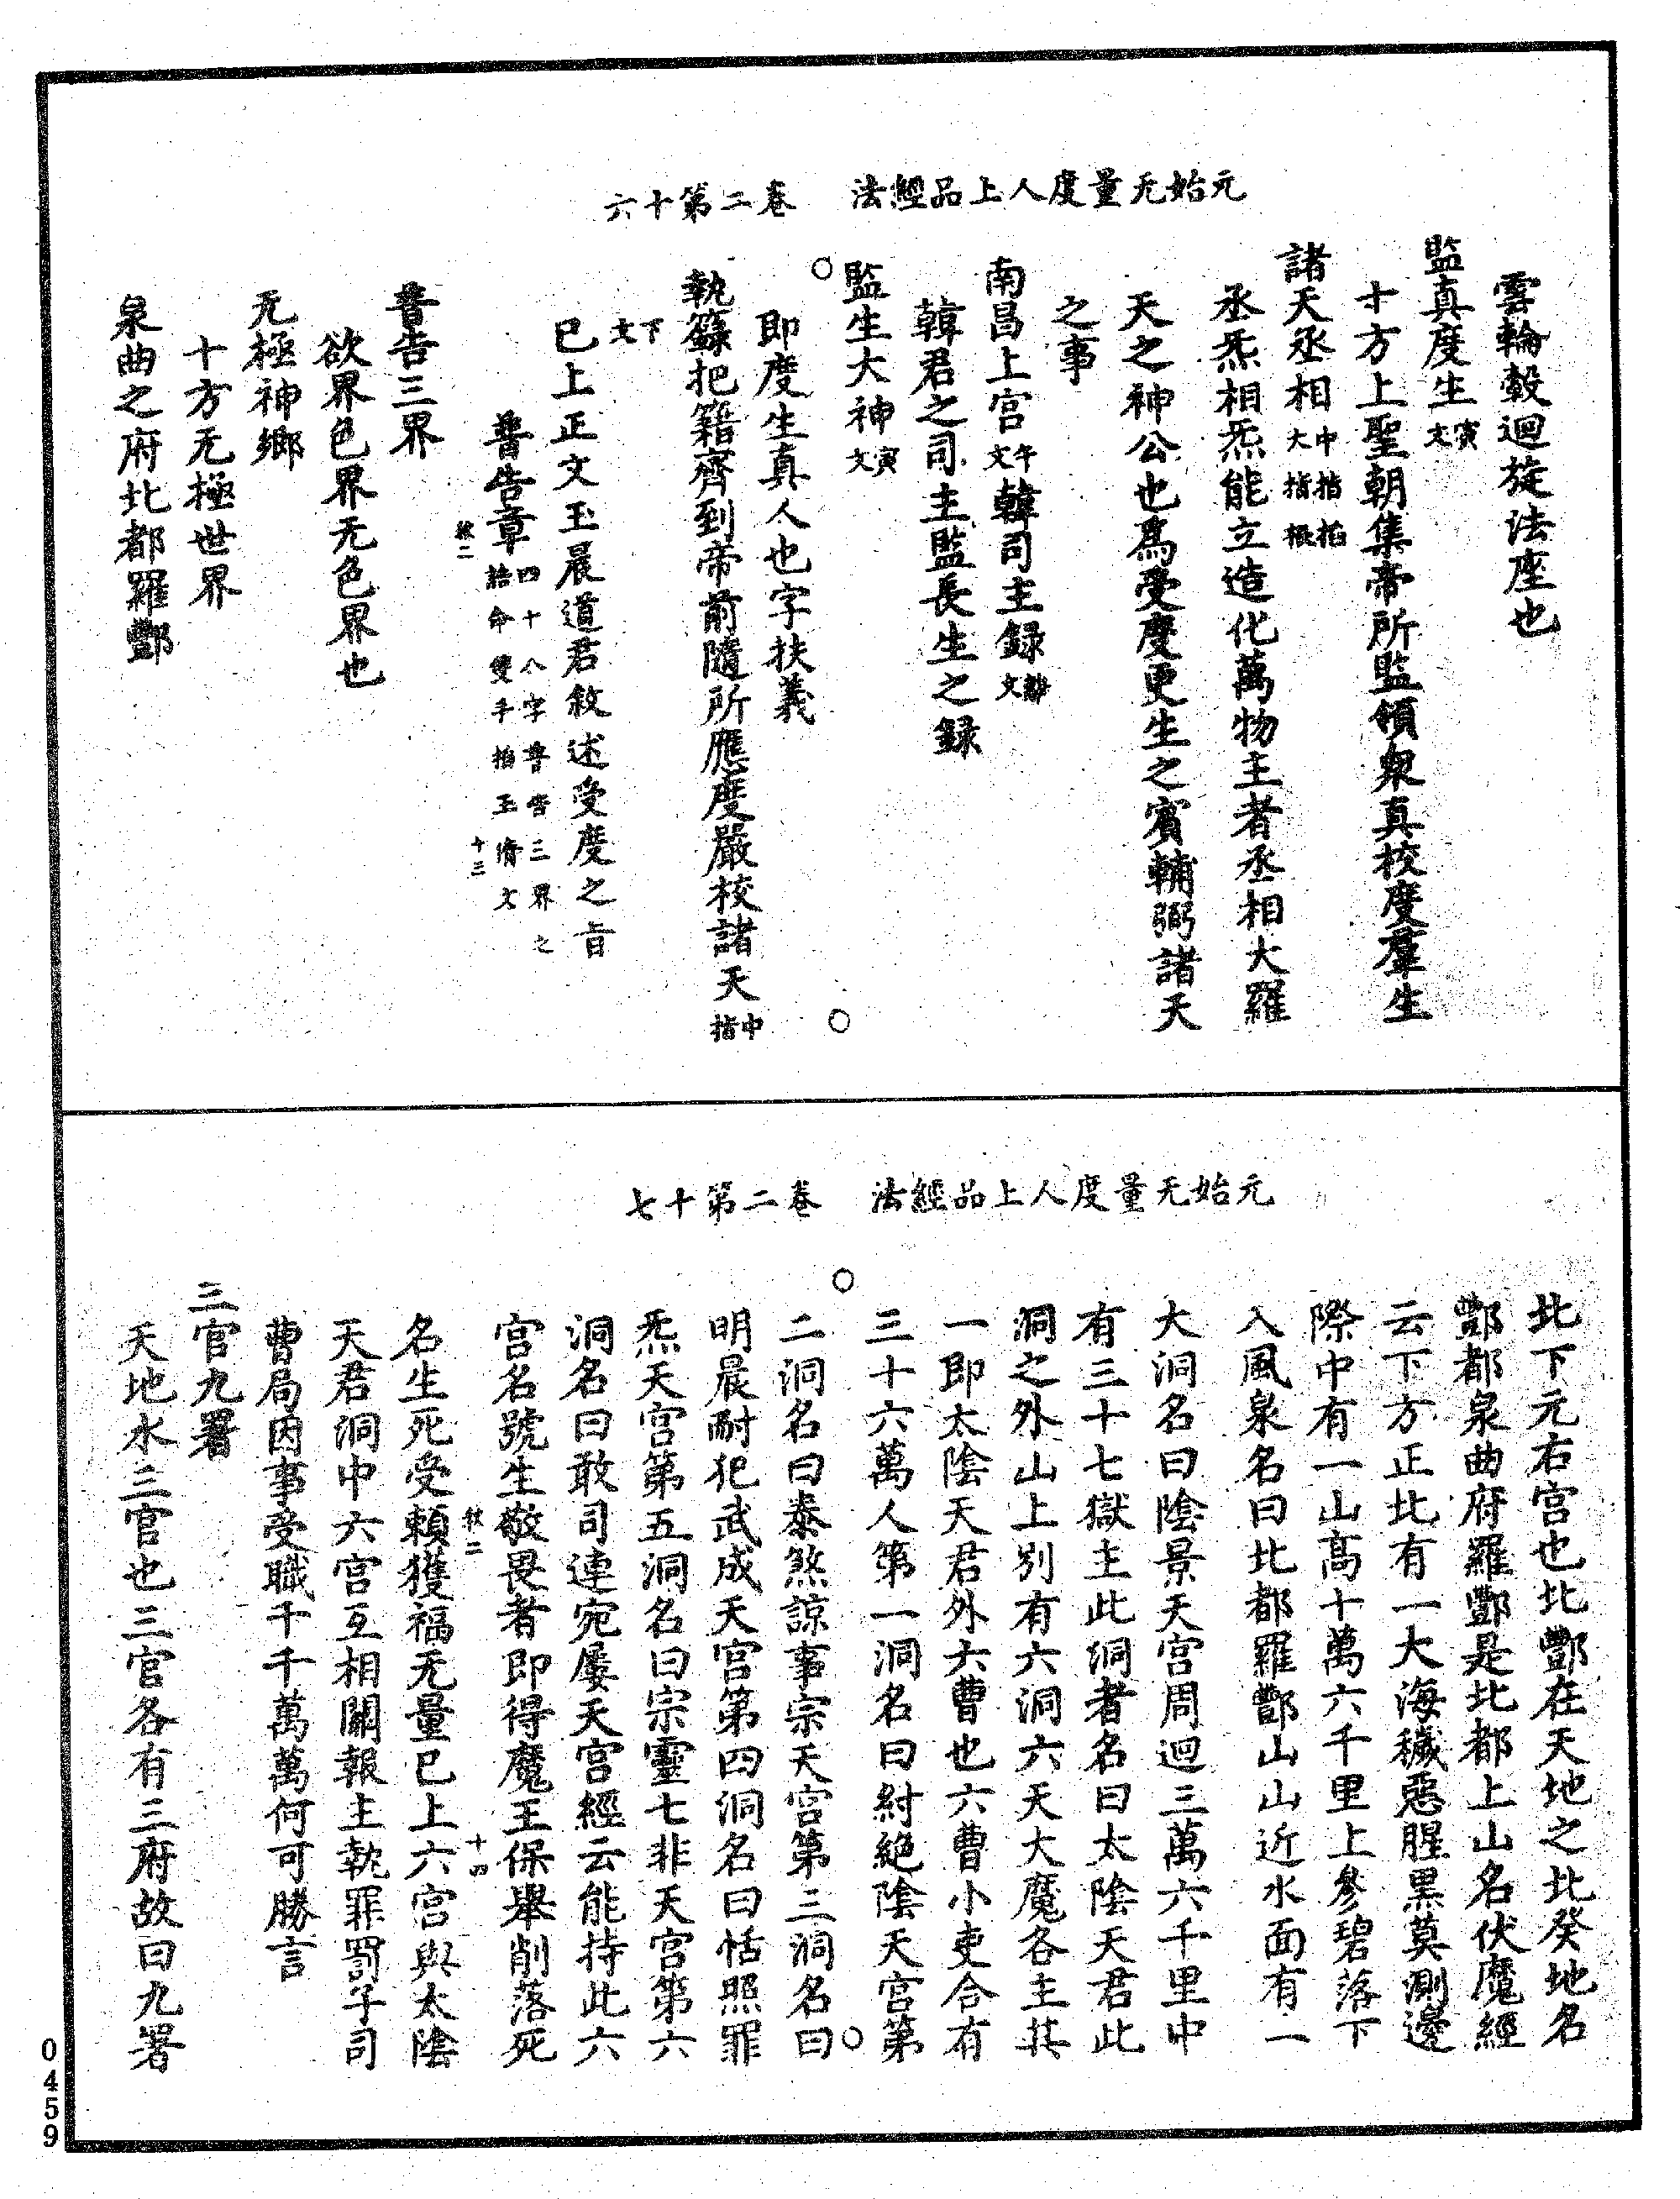 元始无量度人上品經法　卷二第十六
雲輪轂迴旋法座也
監真度生寅文
十方上聖朝集帝所監領衆真校度羣生
諸天丞相中指掐大指檄
丞炁相炁能立造化萬物主者丞相大羅
天之神公也爲受度更生之賓輔弼諸天
之事
南昌上宮午文韓司主録離文
韓君之司主監長生之録
監生大神寅文
即度生真人也字扶義
執籙把籍齊到帝前隨所應度嚴校諸天中指
下文
已上正文玉晨道君敘述受度之旨
普告章四十八字普告三界之誥命雙手掐玉清文
十三
普告三界
欲界色界无色界也
无極神鄉
十方无極世界
泉曲之府北都羅酆
元始无量度人上品經法　卷二第十七
北下元右宮也北酆在天地之北癸地名
酆都泉曲府羅酆是北都上山名伏魔經
云下方正北有一大海穢惡腥黑莫測邊
際中有一山高十萬六千里上參碧落下
入風泉名曰北都羅酆山山近水面有一
大洞名曰陰景天宮周迴三萬六千里中
有三十七獄主此洞者名曰太陰天君此
洞之外山上別有六洞六天大魔各主其
一即太陰天君外六曹也六曹小吏合有
三十六萬人第一洞名曰紂絕陰天宮第
二洞名曰泰煞諒事宗天宮第三洞名曰
明晨耐犯武成天宮第四洞名曰恬照罪
炁天宮第五洞名曰宗靈七非天宮第六
洞名曰敢司連宛屢天宮經云能持此六
宮名號生敬畏者即得魔王保舉削落死
十四
名生死受賴獲福无量已上六宮與太陰
天君洞中六宮互相關報主執罪罰子司
曹局因事受職千千萬萬何可勝言
三官九署
天地水三官也三官各有三府故曰九署
0459